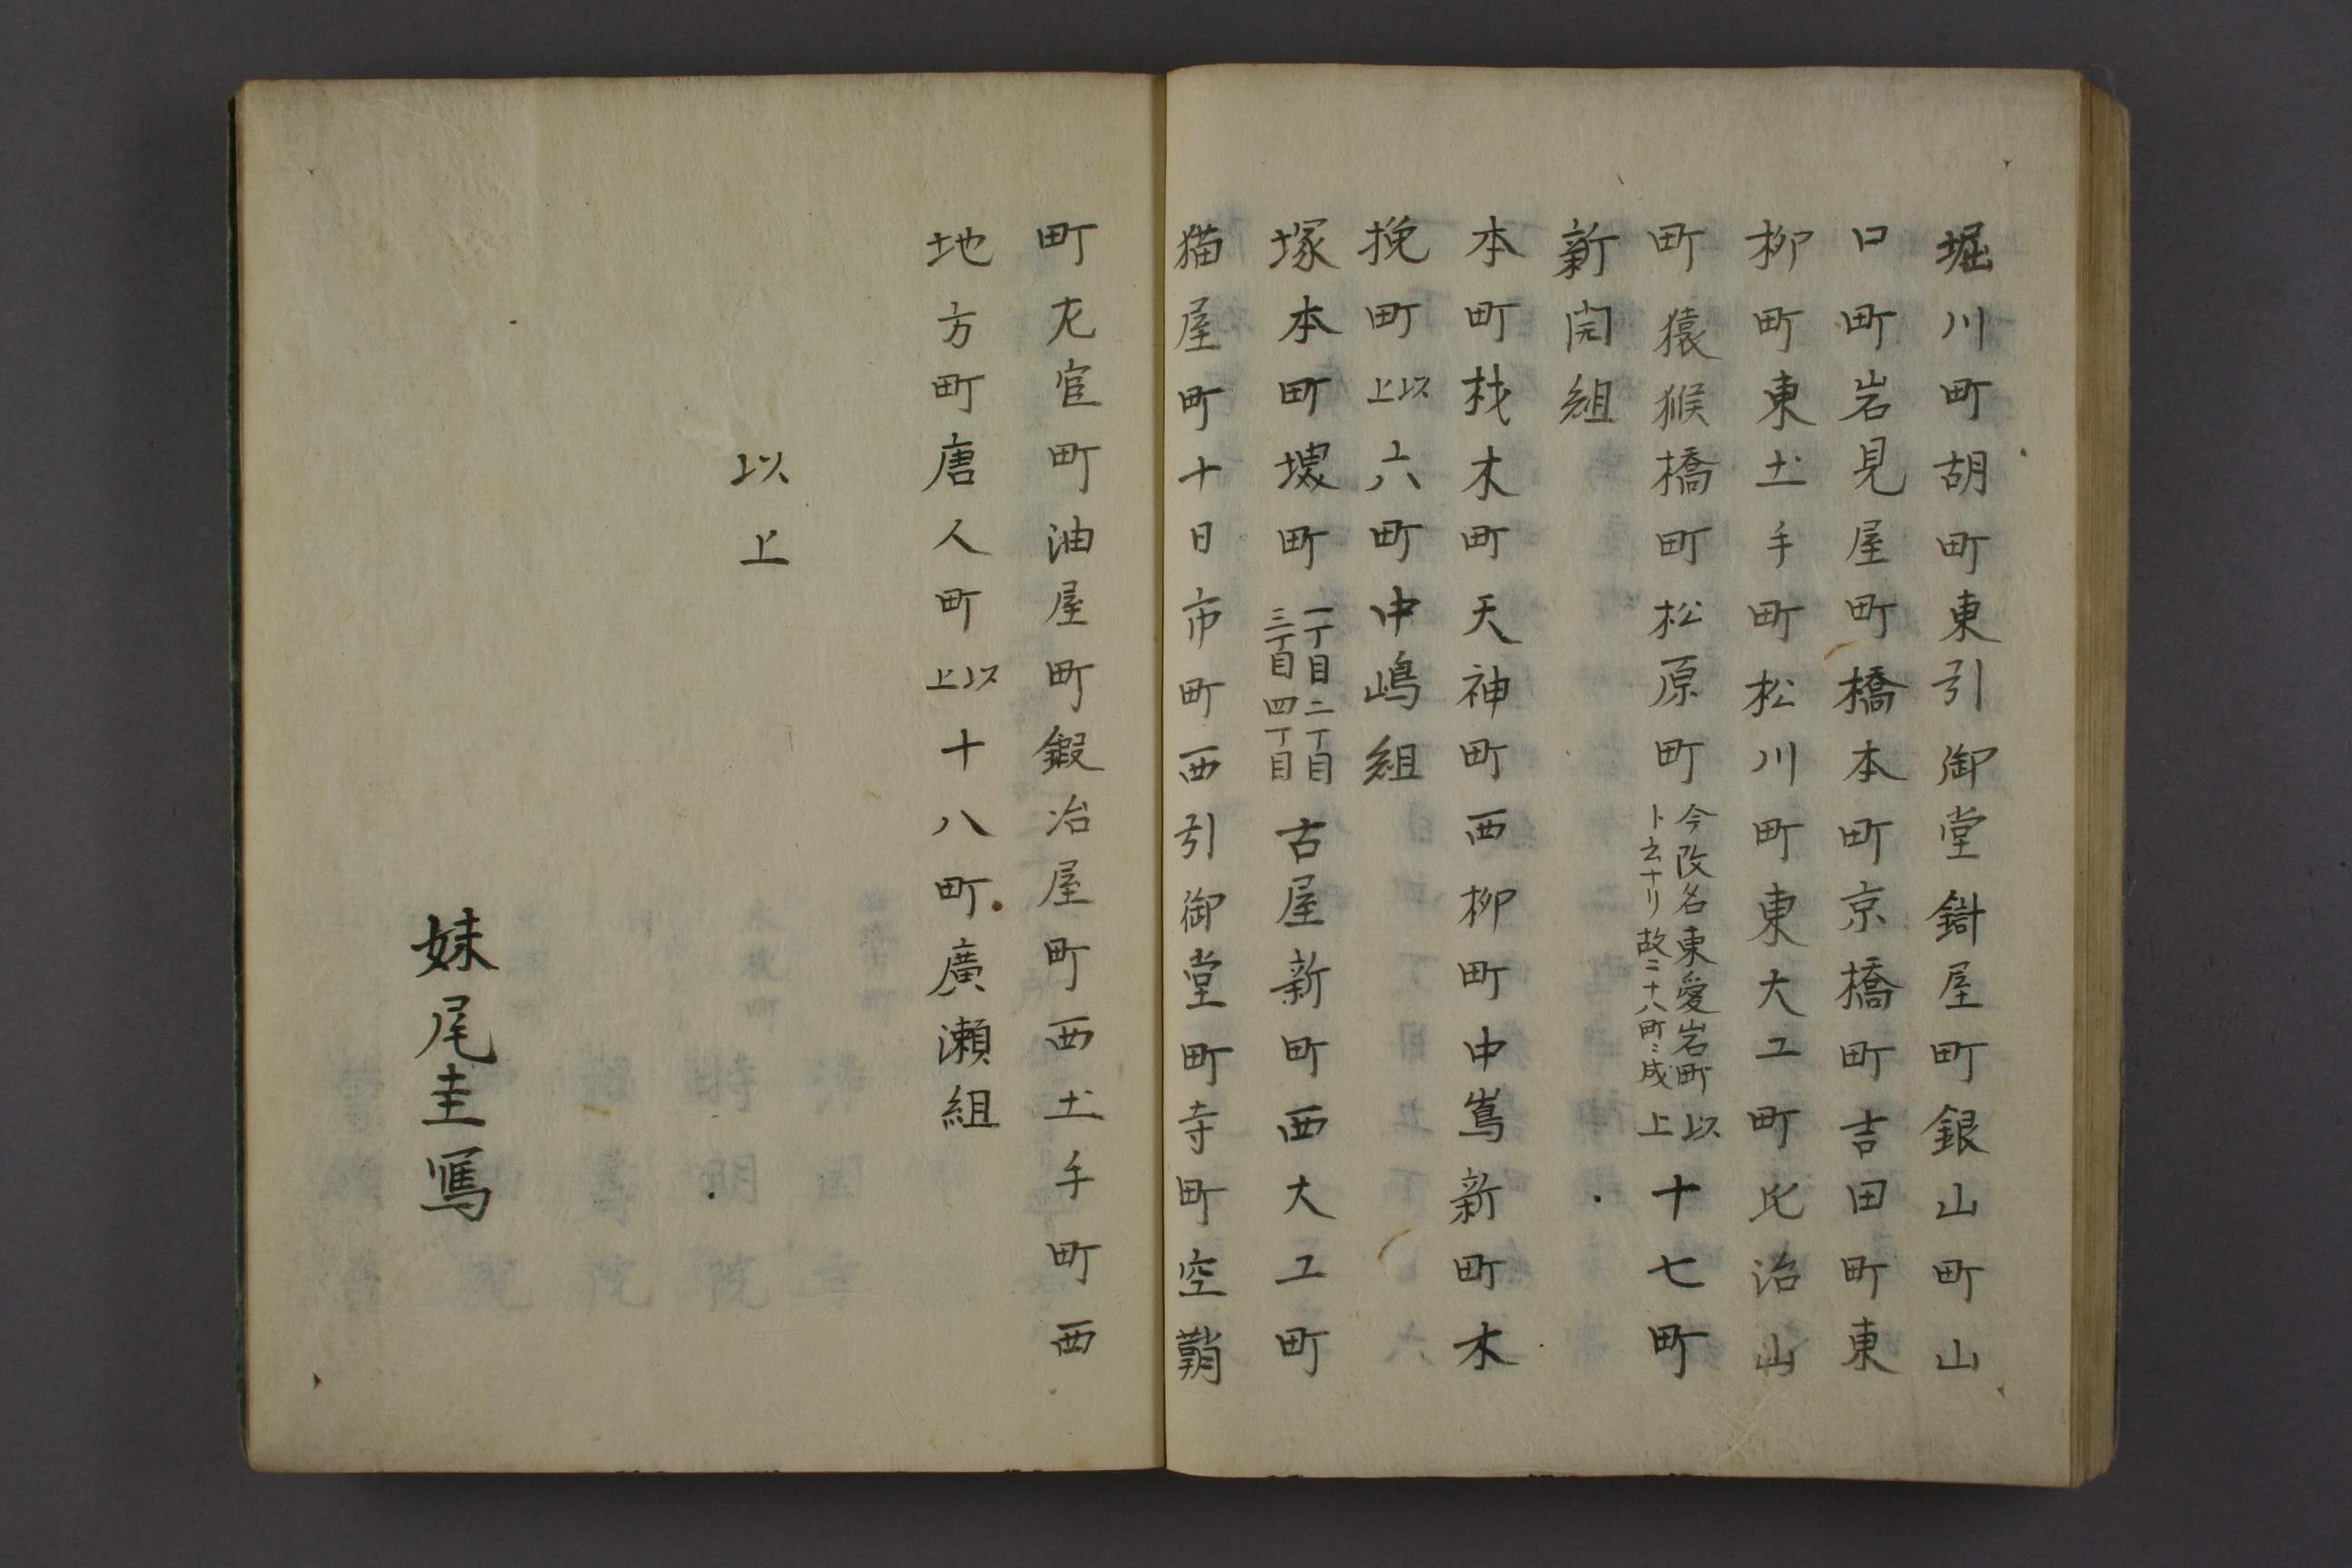 堀川町胡町東引御堂錺屋町銀山町山
口町岩見屋町橋本町京橋町吉田町東
柳町東土手町松川町東大工町比治山
町猿猴橋町松原町今改名東愛岩町ト云ナリ故ニ十八町ニ成以上十七町
新開組
本町材木町天神町西柳町中嶌新町木
挽町以上六町中嶋組
塚本町堺町一丁目二丁目三丁目四丁目古屋新町西大工町
猫屋町十日市町西引御堂町寺町空鞘
町左官町油屋町鍜冶屋町西土手町西
地方町唐人町以上十八町廣瀬組
以上
妹尾圭寫